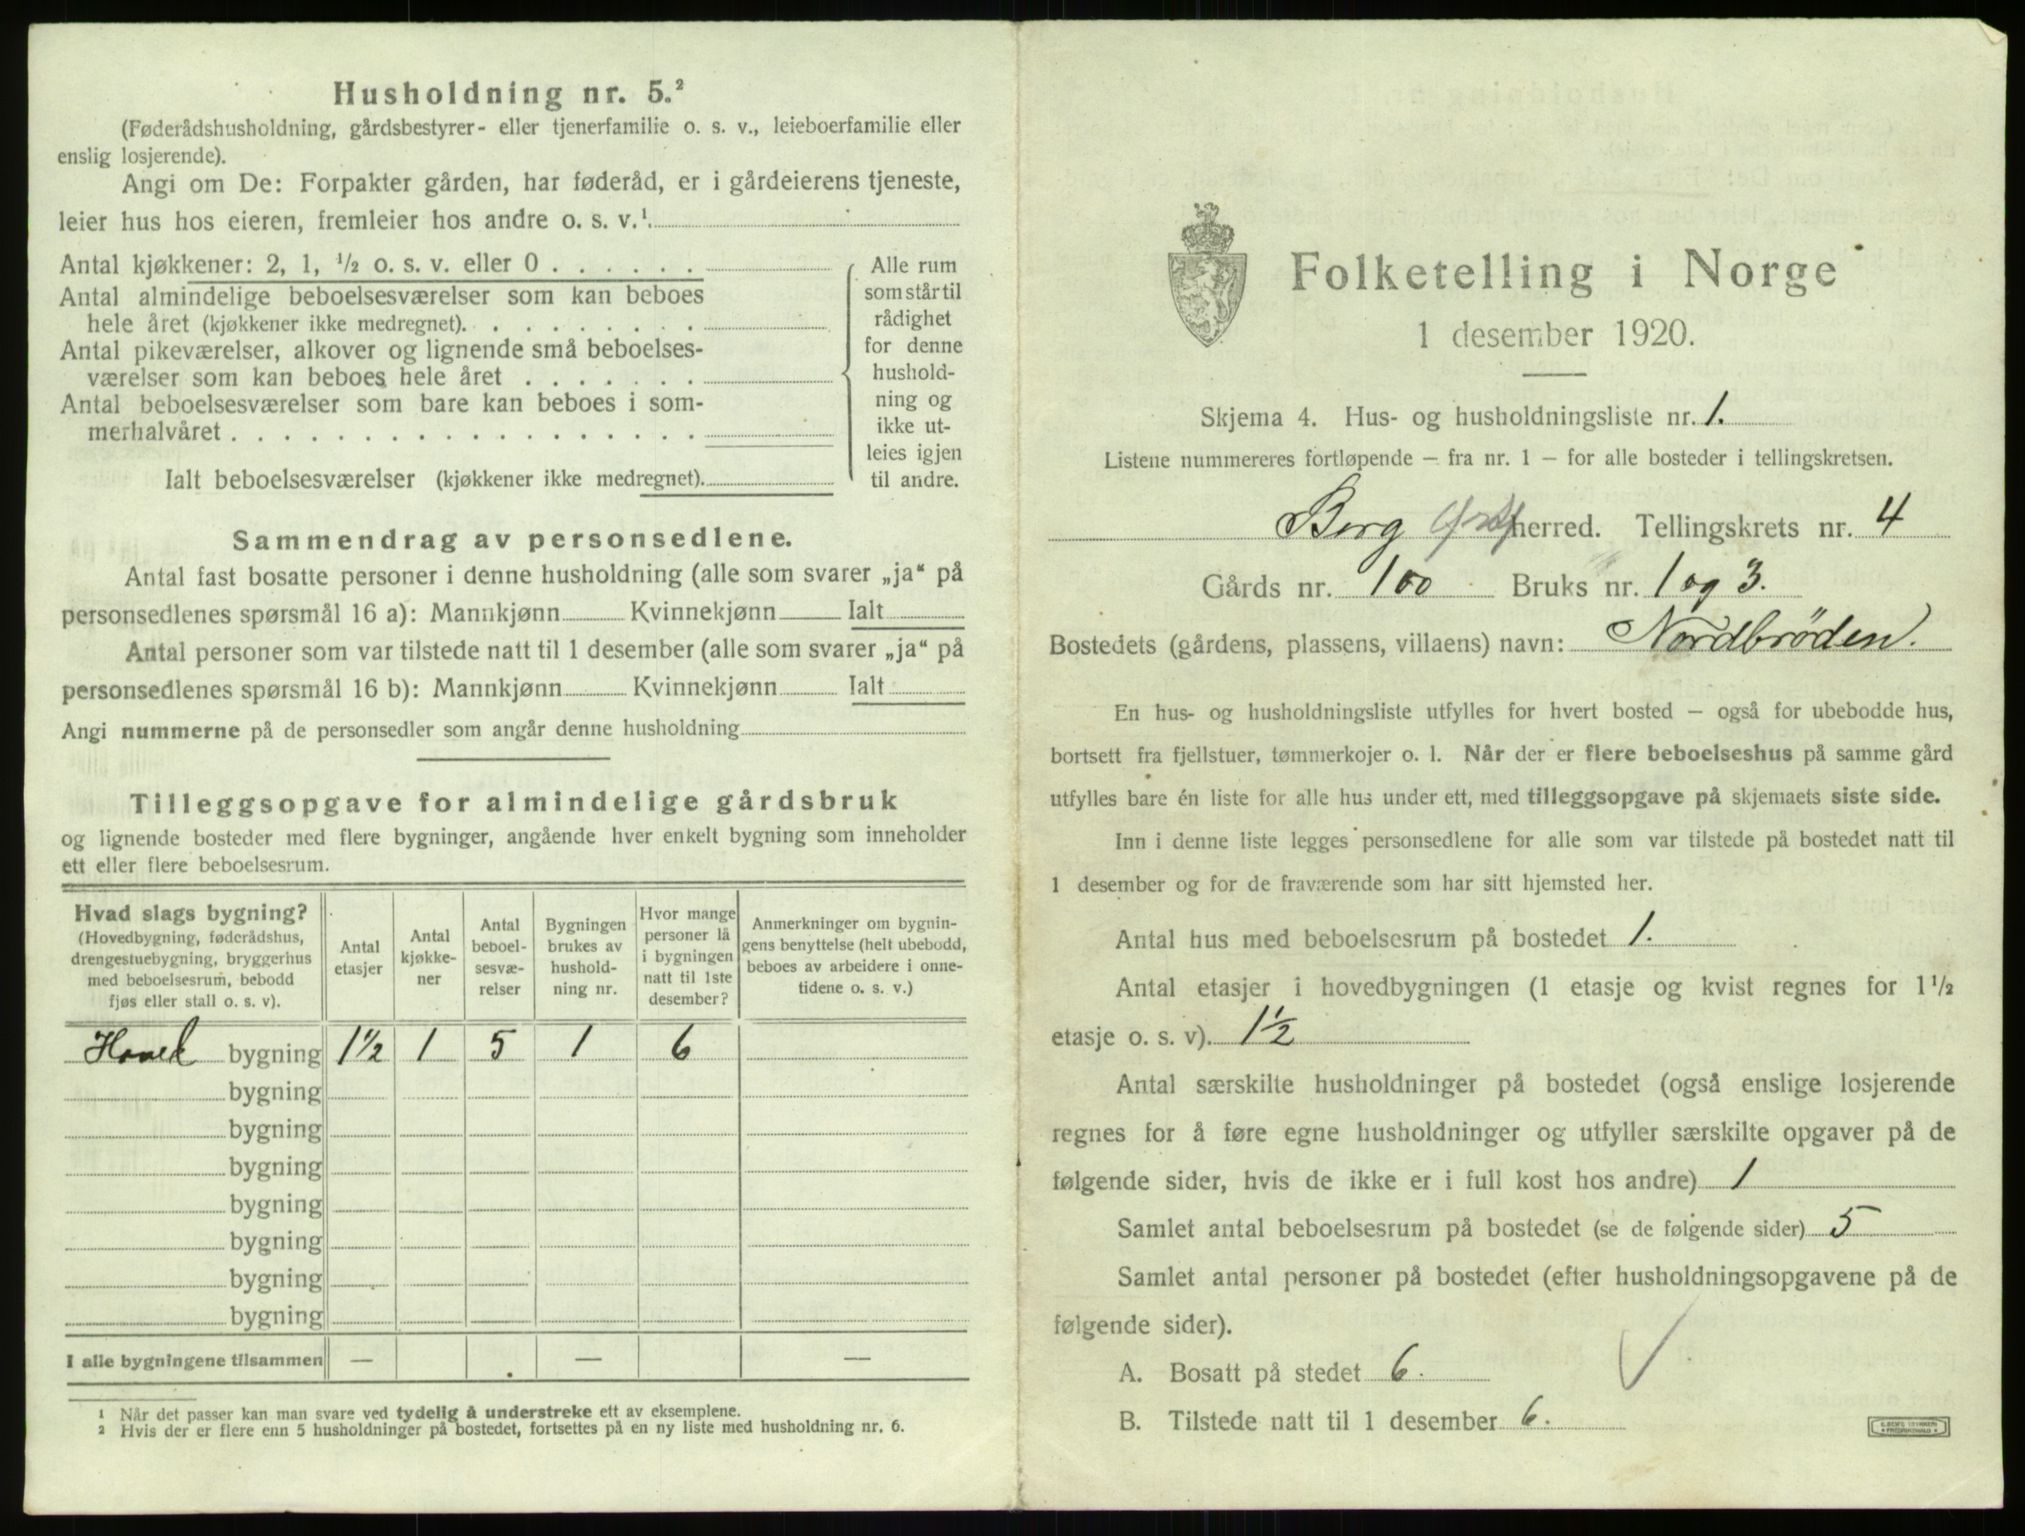 Husholdning nr. 5.²
(Føderådshusholdning, gårdsbestyrer- eller tjenerfamilie o. s. v., leieboerfamilie eller
enslig losjerende).
Angi om De: Forpakter gården, har føderåd, er i gårdeierens tjeneste,
leier hus hos eieren, fremleier hos andre o. s. v.¹
Antal kjøkkener: 2, 1, ½ o. s. v. eller 0 . . . . . .
Antal almindelige beboelsesværelser som kan beboes
hele året (kjøkkener ikke medregnet). . . . . . . . .
Antal pikeværelser, alkover og lignende små beboelses-
værelser som kan beboes hele året . . . . . . .
Antal beboelsesværelser som bare kan beboes i som-
merhalvåret . . . . . . . . . . . . . . . . . .
Ialt beboelsesværelser (kjøkkener ikke medregnet).
Alle rum
som står til
rådighet
for denne
hushold-
ning og
ikke ut-
leies igjen
til andre.
Sammendrag av personsedlene.
Antal fast bosatte personer i denne husholdning (alle som svarer „ja“ på
personsedlenes spørsmål 16 a): Mannkjønn Kvinnekjønn Ialt
Antal personer som var tilstede natt til 1 desember (alle som svarer „ja“ på
personsedlenes spørsmål 16 b): Mannkjønn Kvinnekjønn Ialt
Angi nummerne på de personsedler som angår denne husholdning
Tilleggsopgave for almindelige gårdsbruk
og lignende bosteder med flere bygninger, angående hver enkelt bygning som inneholder
ett eller flere beboelsesrum.
Hvad slags bygning?
(Hovedbygning, føderådshus,
drengestuebygning, bryggerhus
med beboelsesrum, bebodd
fjøs eller stall o. s. v).
Antal
etasjer
Antal
kjøkke-
ner
Antal
beboel-
sesvæ-
relser
Bygningen
brukes av
hushold-
ning nr.
Hvor mange
personer lå
i bygningen
natt til 1ste
desember?
Anmerkninger om bygnin-
gens benyttelse (helt ubebodd,
beboes av arbeidere i onne-
tidene o. s. v.)
Hoved bygning 1½ 1 5 1 6
bygning
bygning
bygning
bygning
bygning
bygning
bygning
I alle bygningene tilsammen — — —
¹ Når det passer kan man svare ved tydelig å understreke ett av eksemplene.
² Hvis der er flere enn 5 husholdninger på bostedet, fortsettes på en ny liste med husholdning nr. 6.
Folketelling i Norge
1 desember 1920.
Skjema 4. Hus- og husholdningsliste nr. 1.
Listene nummereres fortløpende — fra nr. 1 — for alle bosteder i tellingskretsen.
Berg herred. Tellingskrets nr. 4
Gårds nr. 100 Bruks nr. 1 og 3.
Bostedets (gårdens, plassens, villaens) navn: Nordbrøden.
En hus- og husholdningsliste utfylles for hvert bosted — også for ubebodde hus,
bortsett fra fjellstuer, tømmerkojer o. l. Når der er flere beboelseshus på samme gård
utfylles bare én liste for alle hus under ett, med tilleggsopgave på skjemaets siste side.
Inn i denne liste legges personsedlene for alle som var tilstede på bostedet natt til
1 desember og for de fraværende som har sitt hjemsted her.
Antal hus med beboelsesrum på bostedet 1.
Antal etasjer i hovedbygningen (1 etasje og kvist regnes for 1½
etasje o. s. v). 1½
Antal særskilte husholdninger på bostedet (også enslige losjerende
regnes for å føre egne husholdninger og utfyller særskilte opgaver på de
følgende sider, hvis de ikke er i full kost hos andre) 1
Samlet antal beboelsesrum på bostedet (se de følgende sider) 5
Samlet antal personer på bostedet (efter husholdningsopgavene på de
følgende sider).
A. Bosatt på stedet 6.
B. Tilstede natt til 1 desember 6.